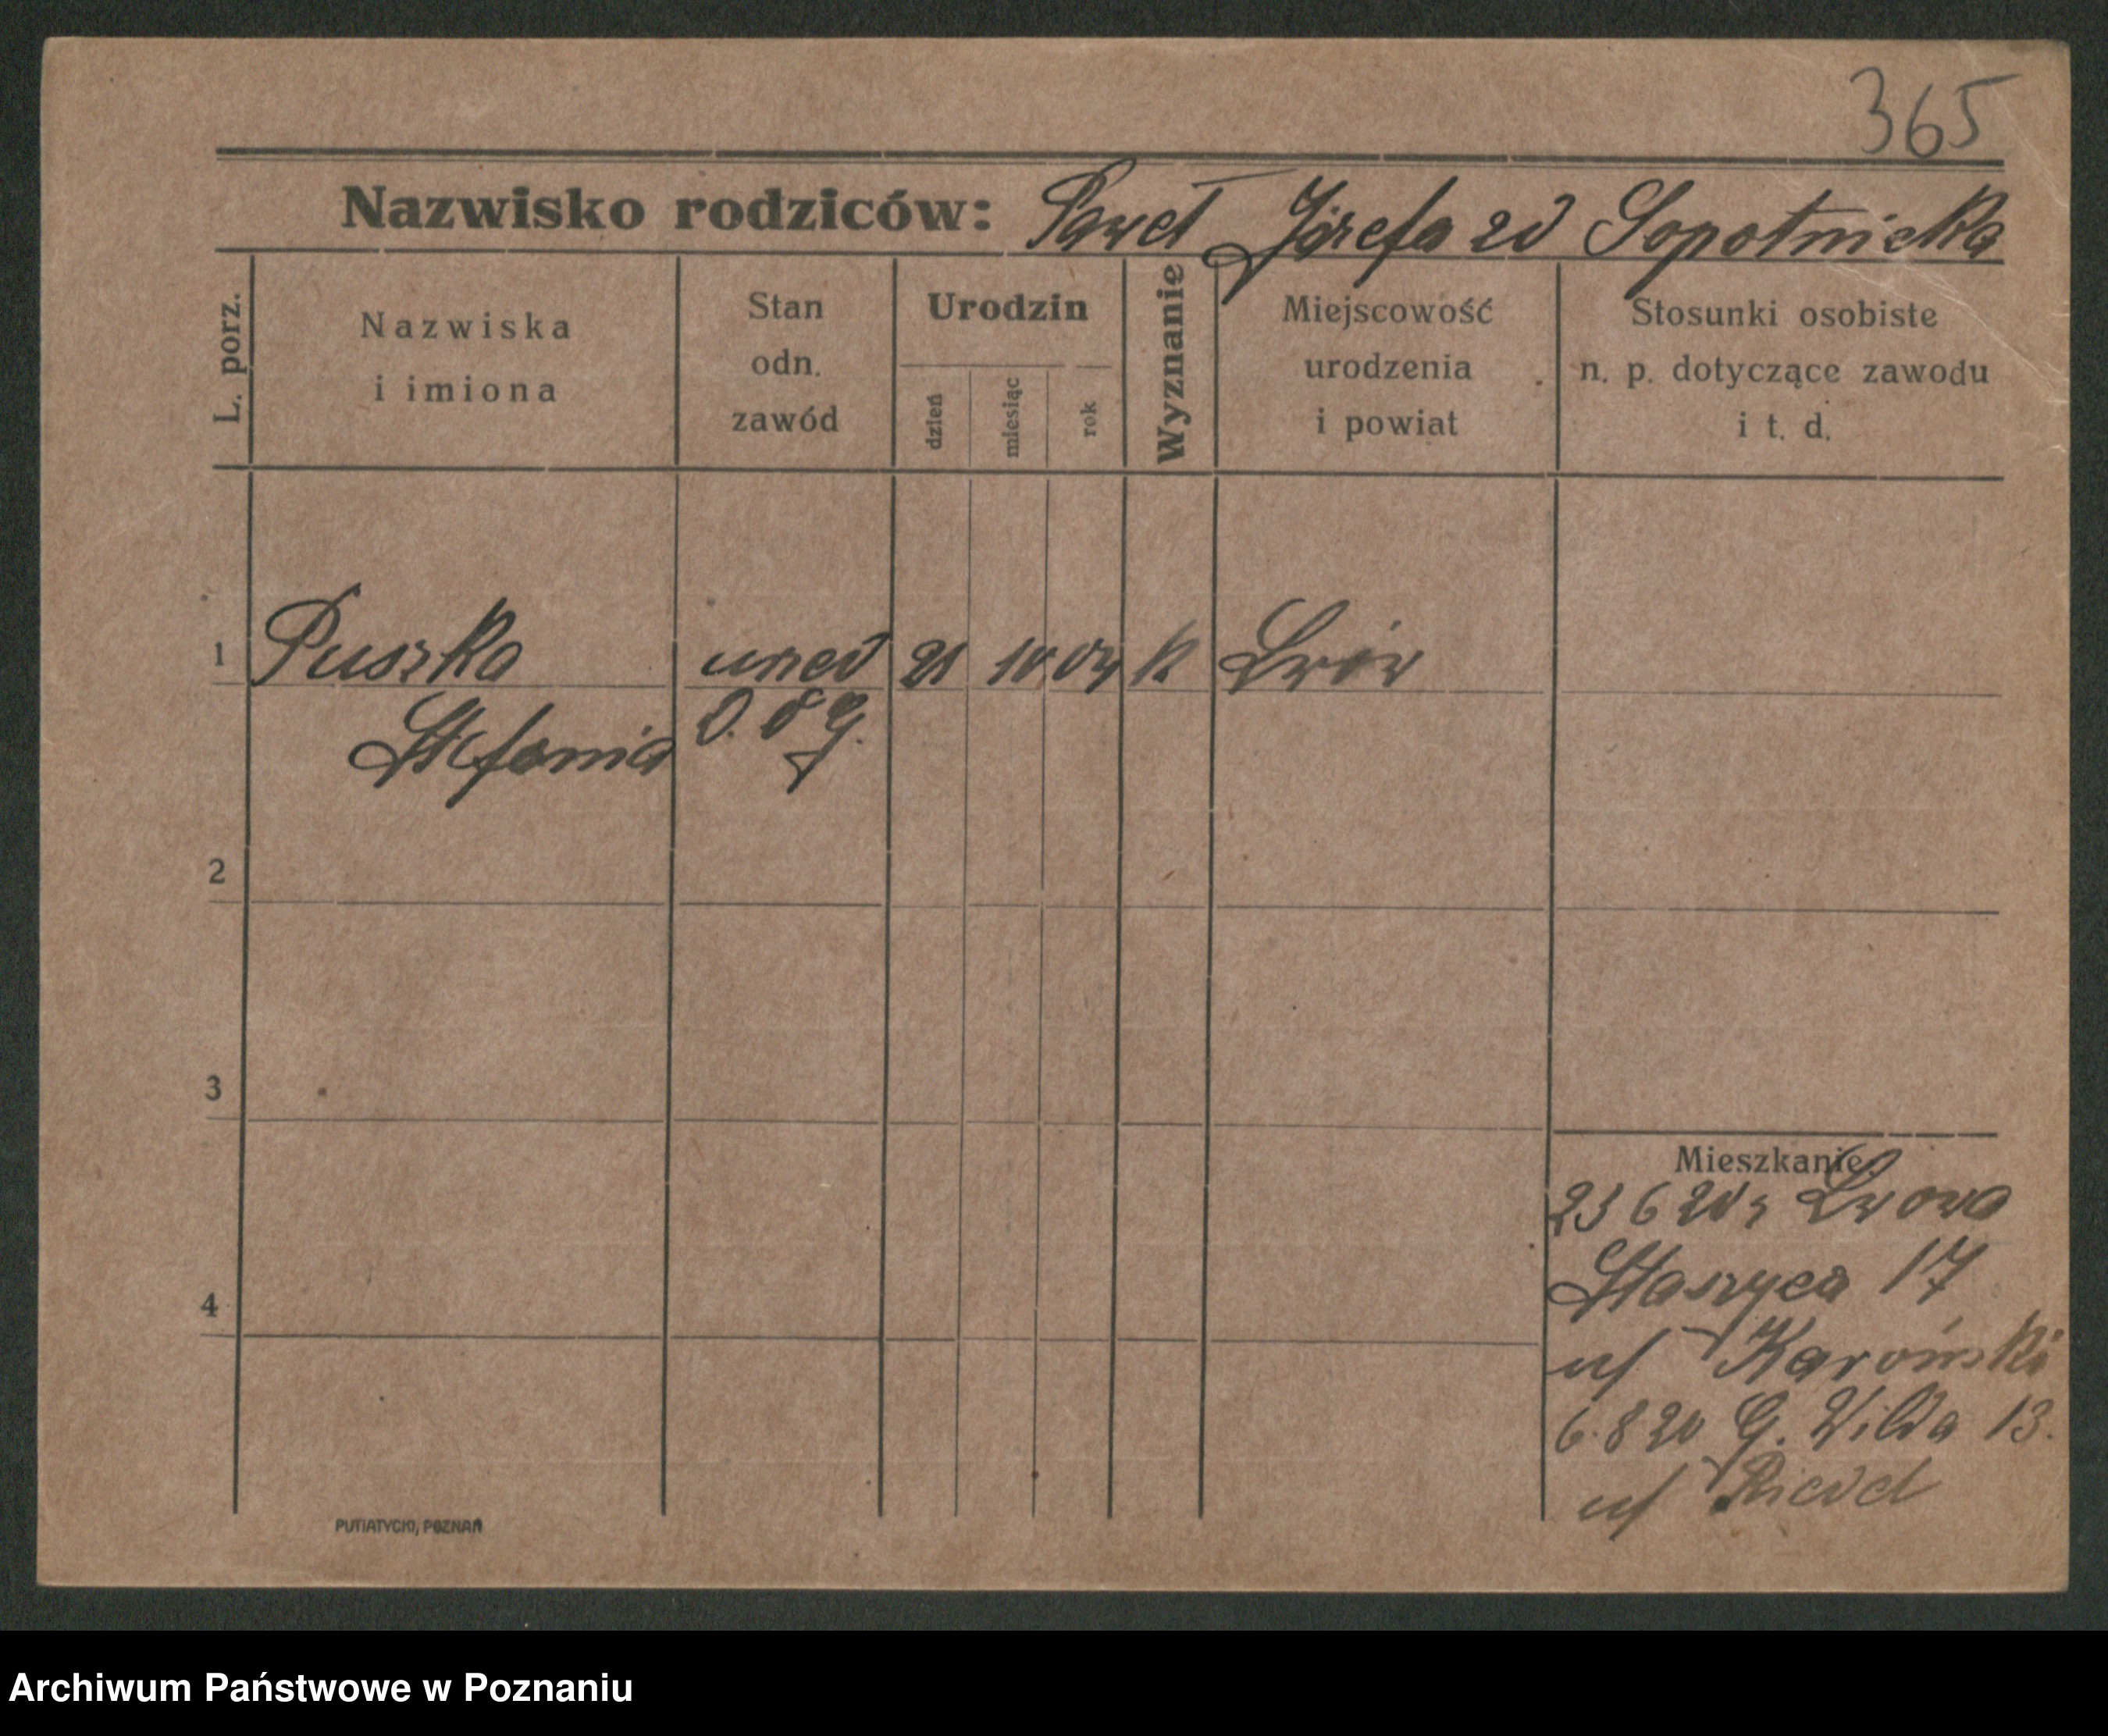 365
Nazwisko rodziców: Paweł Józefa zd Sopotnicka
L. porz.
Nazwiska
i imiona
Stan
odn.
zawód
Urodzin
dzień
miesiąc
rok
Wyznanie
Miejscowość
urodzenia
i powiat
Stosunki osobiste
n. p. dotyczące zawodu
i t. d.
1 Puszka urzed 21 10 04 k Lwów
Stefania D. O G.
2
3
4
Mieszkanie.
23 6 20 z Lwowa
Staszyca 17
u/
6.8 20 G. Wilda 13.
u/ Riedel
PUTIATYCKI, POZNAŃ
Archiwum Państwowe w Poznaniu